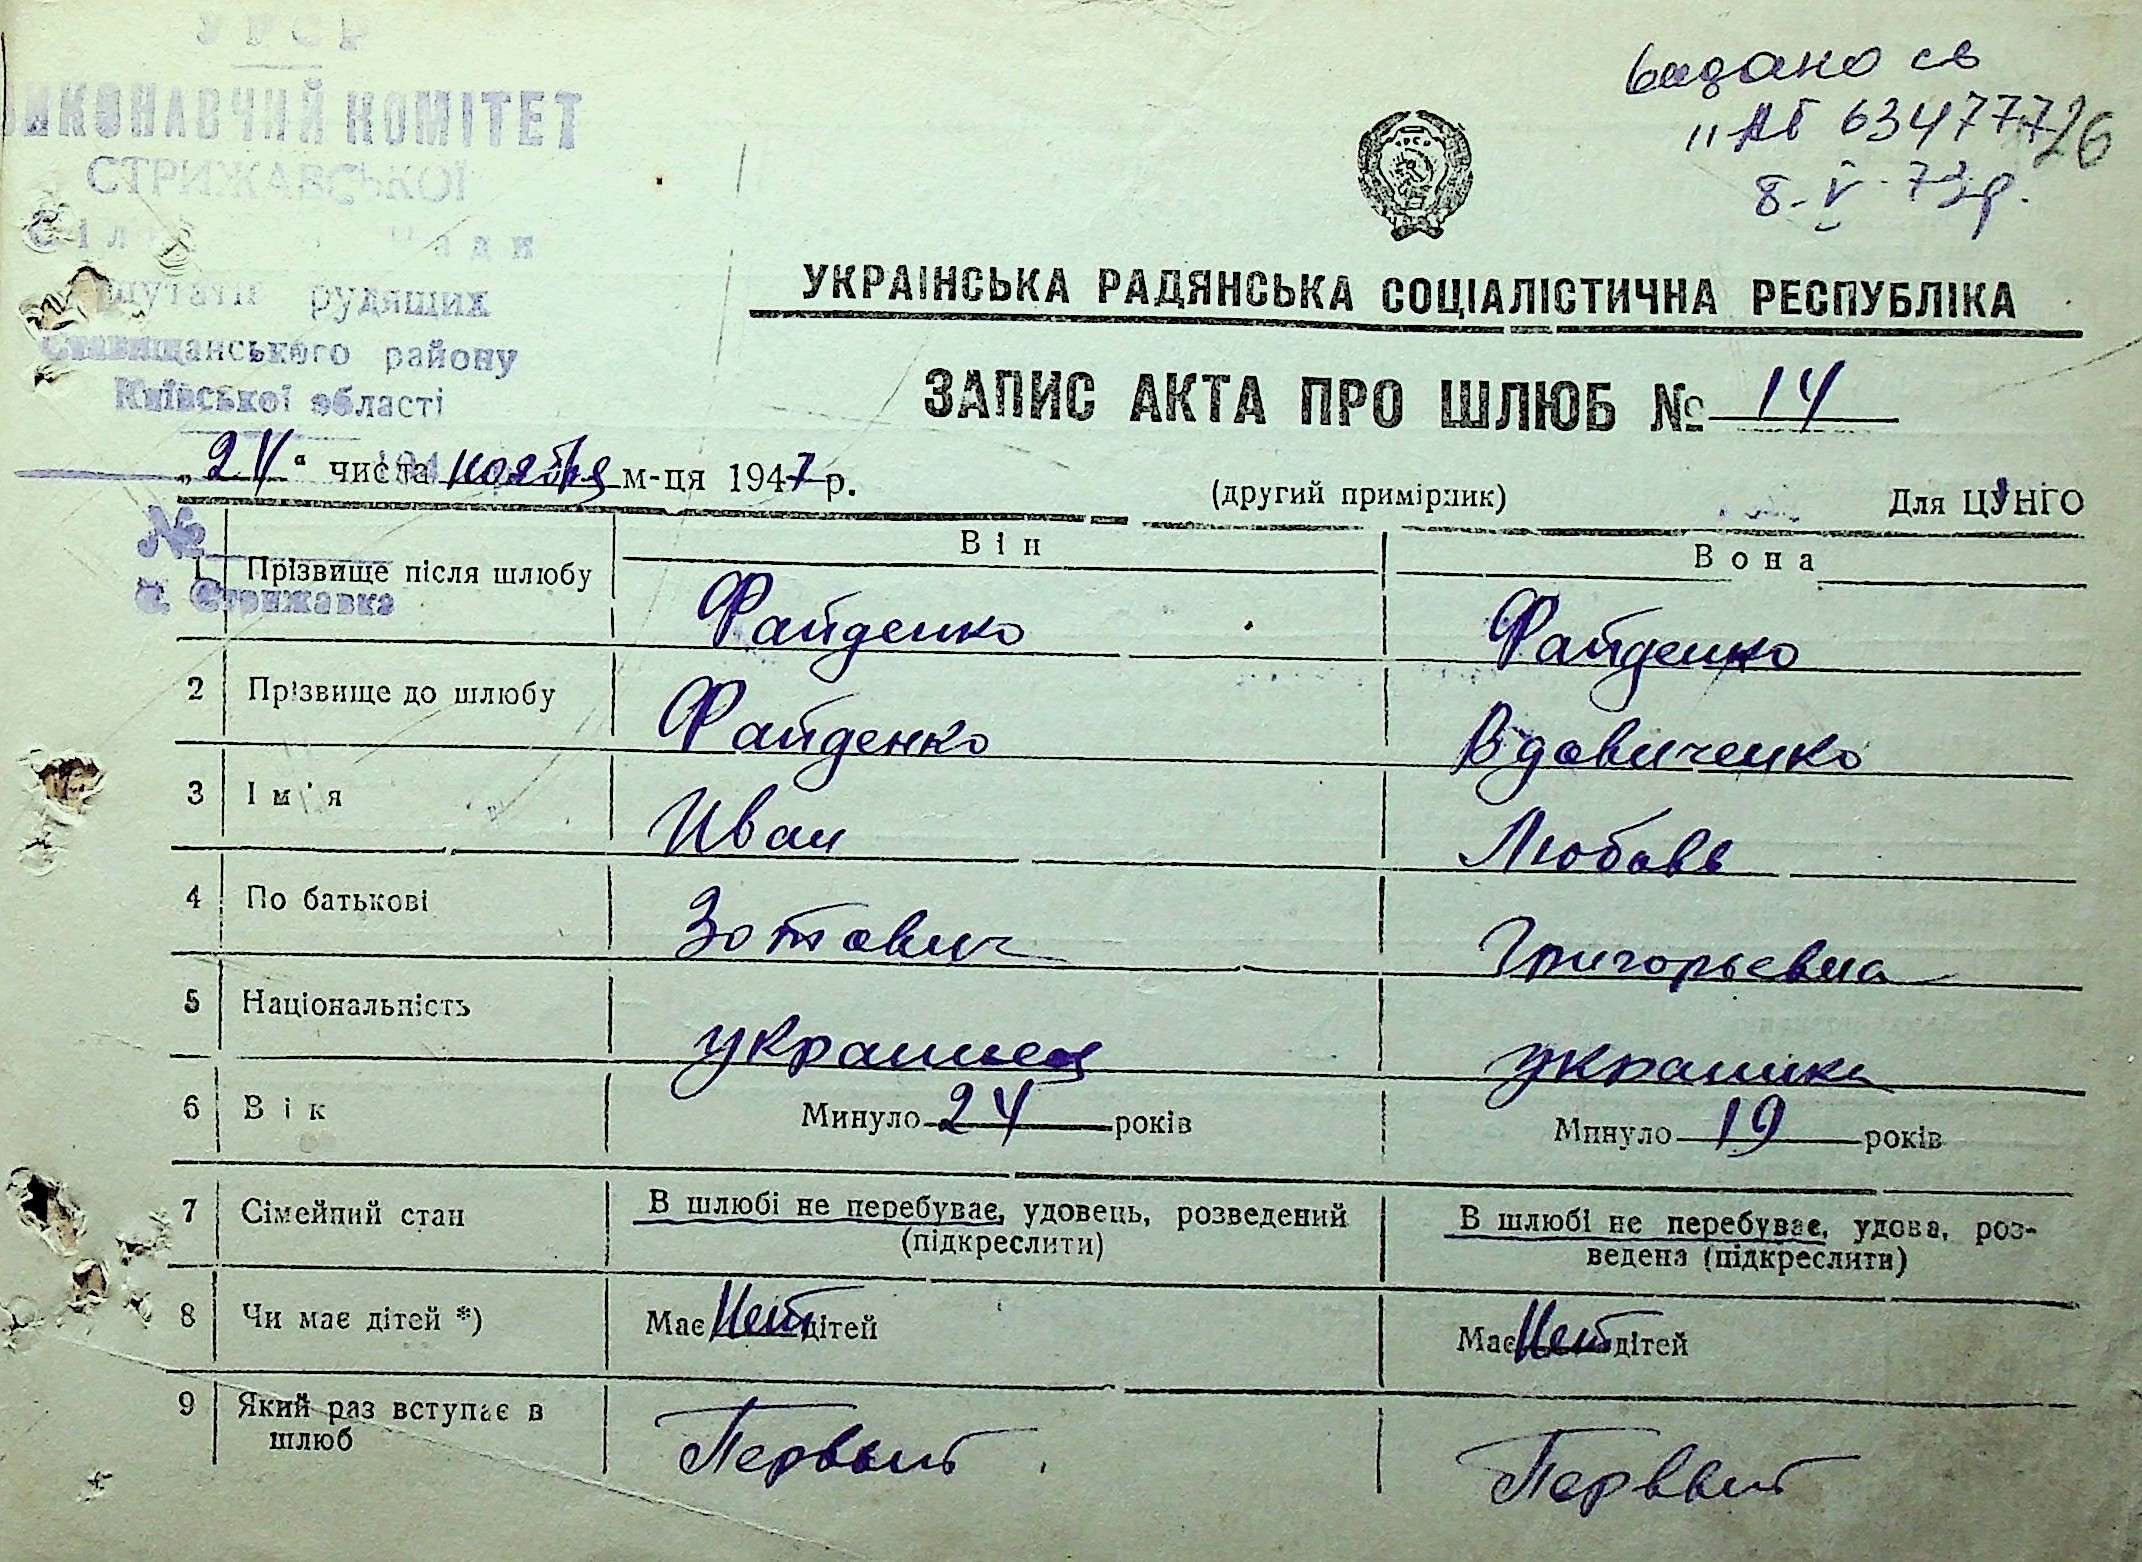 УРСР
ВИКОНАВЧИЙ КОМІТЕТ
СТРИЖАВСЬКОЇ
Ставищанського району
Київської області
видано св
"АБ 634777 26
8-V-73р.
УКРАЇНСЬКА РАДЯНСЬКА СОЦІАЛІСТИЧНА РЕСПУБЛІКА
ЗАПИС АКТА ПРО ШЛЮБ № 14
„24“ числа ноября м-ця 1947 р.
(другий примірник) Для ЦУНГО
№
с. Стрижавка
Він Вона
1 Прізвище після шлюбу Файденко Файденко
2 Прізвище до шлюбу Файденко Вдовиченко
3 Ім'я Иван Любовь
4 По батькові Зотович Григорьевна
5 Національність украинец украинка
6 Вік Минуло 24 років Минуло 19 років
7 Сімейний стан В шлюбі не перебуває, удовець, розведений (підкреслити) В шлюбі не перебуває, удова, роз-
ведена (підкреслити)
8 Чи має дітей *) Має Нет дітей Має Нет дітей
9 Який раз вступає в
шлюб Первый Первый